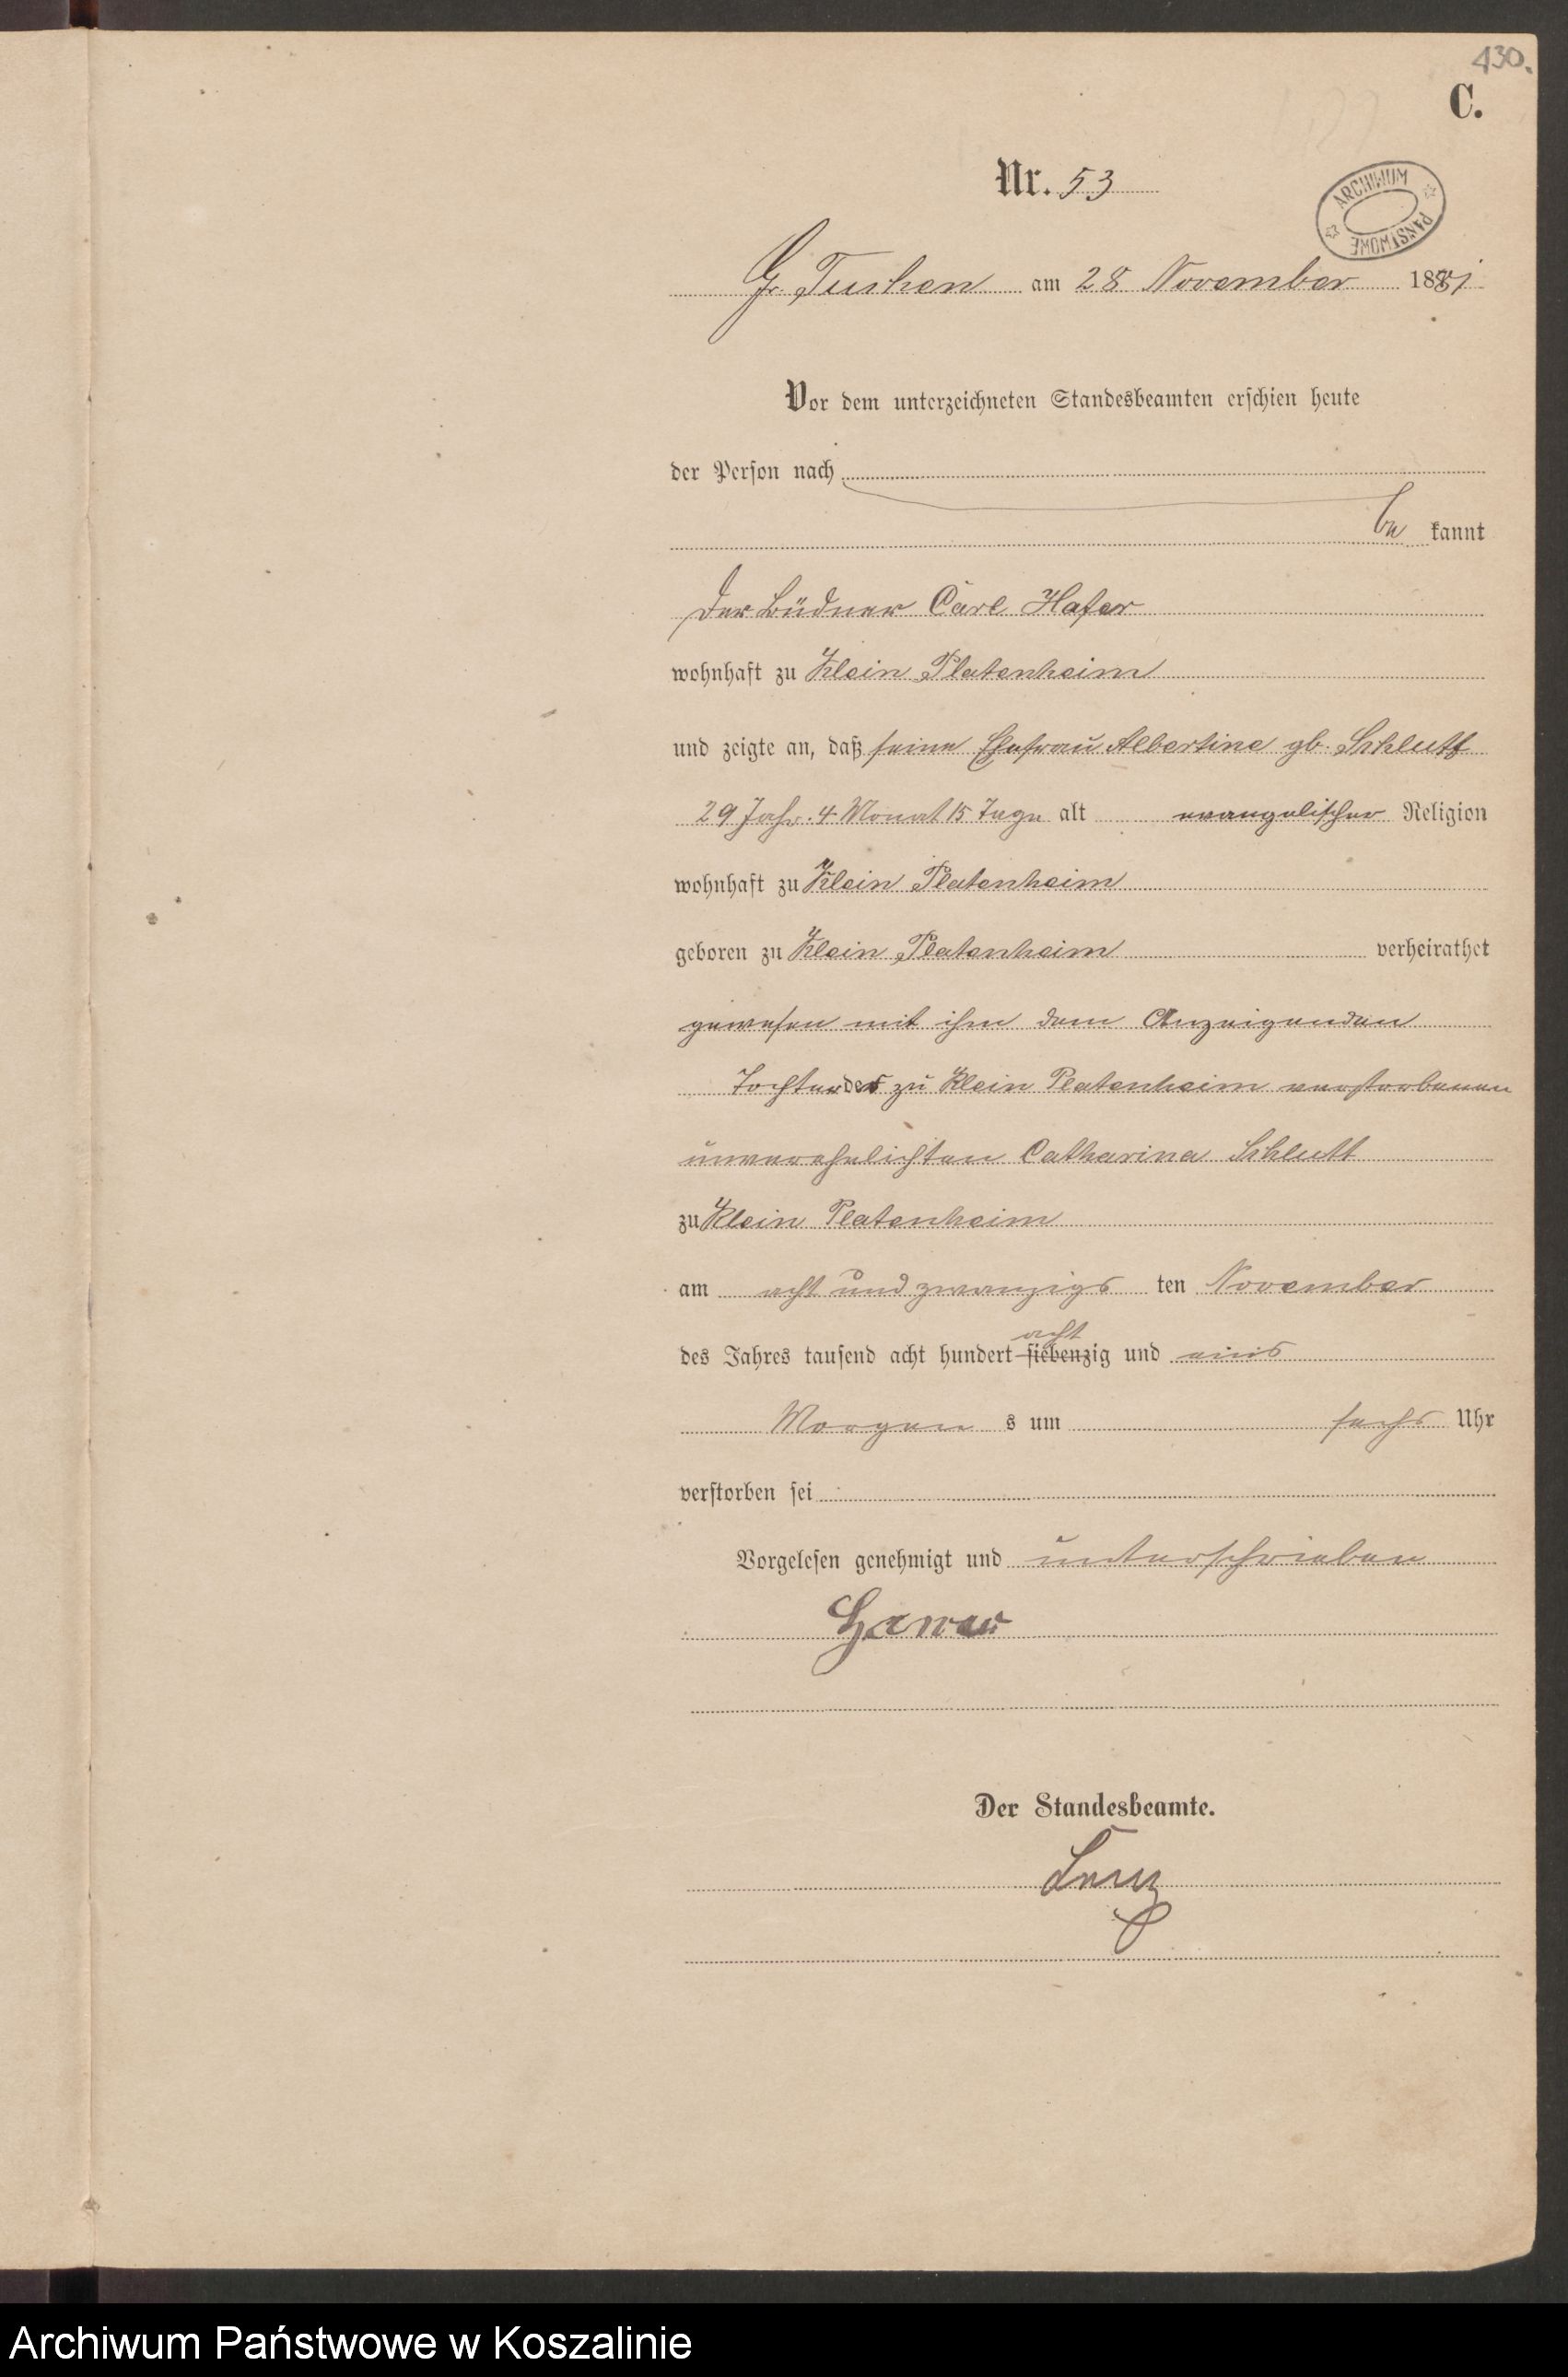 430.
C.
Nr. 53
ARCHIWUM PAŃSTWOWE
Gr. Tuchen am 28 November 1881
Vor dem unterzeichneten Standesbeamten erschien heute
der Person nach
be kannt
Der Büdner Carl Hafer
wohnhaft zu Klein Platenheim
und zeigte an, daß seine Ehefrau Albertine gb. Schlutt
29 Jahr. 4 Monat 15 Tage alt evangelischer Religion
wohnhaft zu Klein Platenheim
geboren zu Klein Platenheim verheirathet
gewesen mit ihm dem Anzeigenden
Tochter der zu Klein Platenheim verstorbenen
unverehelichten Catharina Schlutt
zu Klein Platenheim
am acht und zwanzigs ten November
acht
des Jahres tausend acht hundert siebenzig und eins
Morgen s um sechs Uhr
verstorben sei
Vorgelesen genehmigt und unterschrieben
Der Standesbeamte.
Archiwum Państwowe w Koszalinie